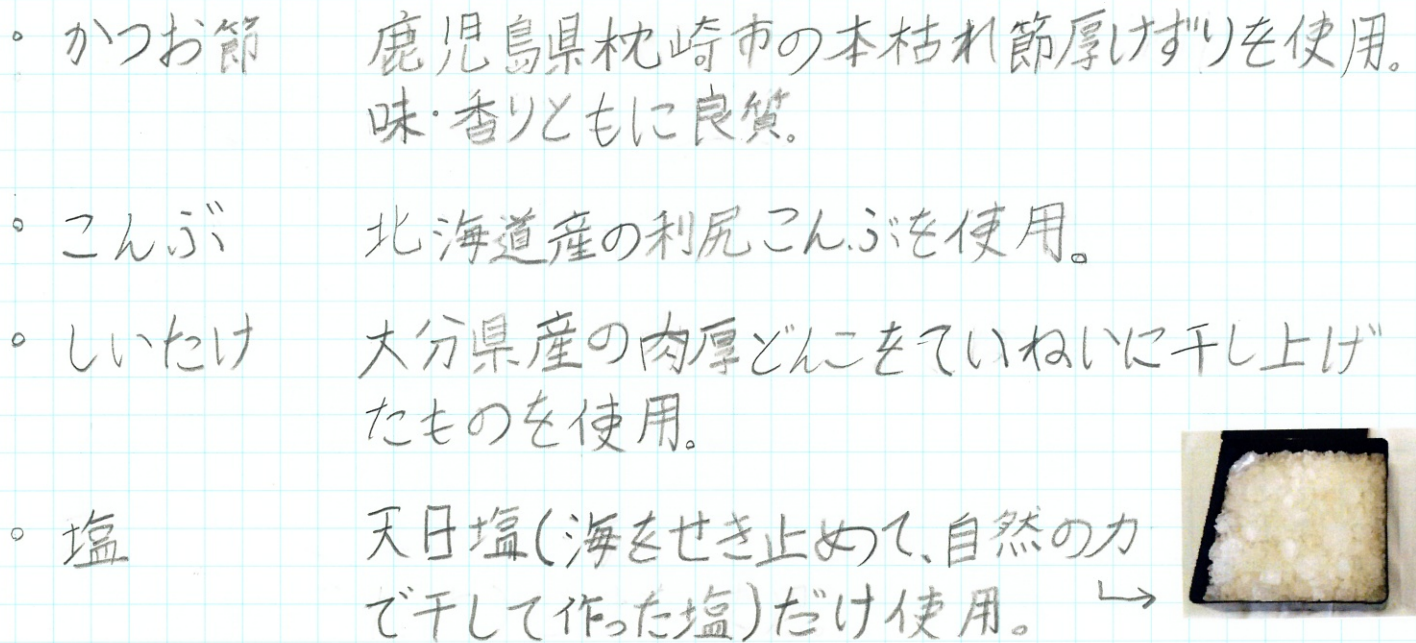 。かつお節 鹿児島県枕崎市の本枯れ節厚けずりを使用。
味・香りともに良質。
。こんぶ 北海道産の利尻こんぶを使用。
。しいたけ 大分県産の肉厚どんこをていねいに干し上げ
たものを使用。
。塩 天日塩(海をせき止めて、自然の力
で干して作った塩)だけ使用。 ↳